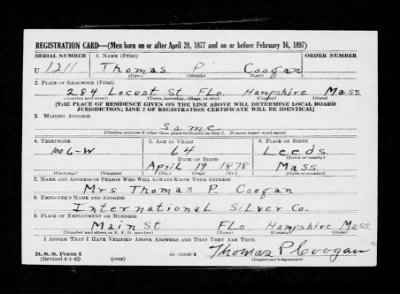 REGISTRATION CARD—(Men born on or after April 28, 1877 and on or before February 16, 1897)
SERIAL NUMBER 1. NAME (Print) ORDER NUMBER
U 1211 Thomas P Coogan
(First) (Middle) (Last)
2. PLACE OF RESIDENCE (Print)
284 Locust St Flo. Hampshire Mass
(Number and street) (Town, township, village, or city) (County) (State)
[THE PLACE OF RESIDENCE GIVEN ON THE LINE ABOVE WILL DETERMINE LOCAL BOARD
JURISDICTION; LINE 2 OF REGISTRATION CERTIFICATE WILL BE IDENTICAL]
3. MAILING ADDRESS
Same
[Mailing address if other than place indicated on line 2. If same insert word same]
4. TELEPHONE 5. AGE IN YEARS 6. PLACE OF BIRTH
1006-W 64 Leeds
DATE OF BIRTH (Town or county)
April 19 1878 Mass
(Exchange) (Number) (Mo.) (Day) (Yr.) (State or country)
7. NAME AND ADDRESS OF PERSON WHO WILL ALWAYS KNOW YOUR ADDRESS
Mrs Thomas P. Coogan
8. EMPLOYER'S NAME AND ADDRESS
International Silver Co.
9. PLACE OF EMPLOYMENT OR BUSINESS
Main St Flo Hampshire Mass.
(Number and street or R. F. D. number) (Town) (County) (State)
I AFFIRM THAT I HAVE VERIFIED ABOVE ANSWERS AND THAT THEY ARE TRUE.
D. S. S. Form 1
(Revised 4-1-42) (over) Thomas P Coogan
(Registrant's signature)